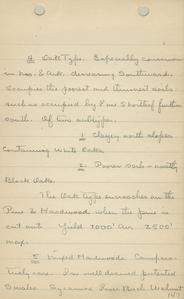 4 Oak Type. Especially common
in Mo. & Ark. decreasing Southward.
Occupies the poorest and thinnest soils
such as occupied by Pine Shortleaf further
south. Of two subtypes.
1 Clayey north slopes
Containing White Oak
2 Poorer soils - mostly
Black Oaks.
The Oak type encroaches on the
Pine & Hardwood when the pine is
cut out. Yield 1000' Av. 2500'
max.
5 Mixed Hardwoods Compara-
tively rare. In well drained protected
Sycamore River Birch Walnut